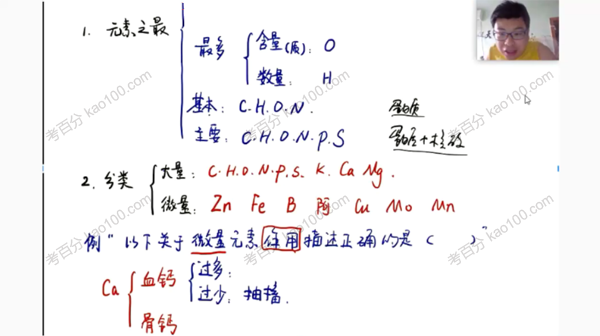 1. 元素之最
最多
含量(质): O
数量: H
基本: C.H.O.N.
蛋白质
主要: C.H.O.N.P.S
蛋白质+核酸
2. 分类
大量: C.H.O.N.P.S. K. Ca Mg.
微量: Zn Fe B 阿 Cu Mo Mn
例 "以下关于微量元素作用描述正确的是 ( )"
Ca
血钙
过多:
过少: 抽搐.
骨钙
考百分 kao100.com
考百分 kao100.com
考百分 kao100.com
考百分 kao100.com
考百分 kao100.com
考百分 kao100.com